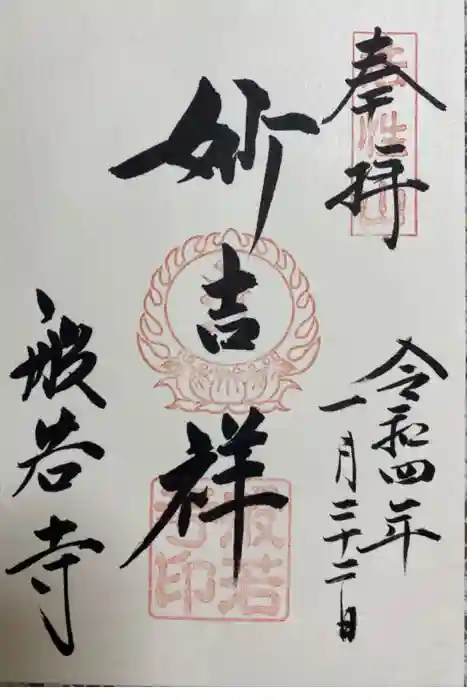 奉拝
法性山
令和四年
一月二十二日
妙吉祥
般若
寺印
般若寺